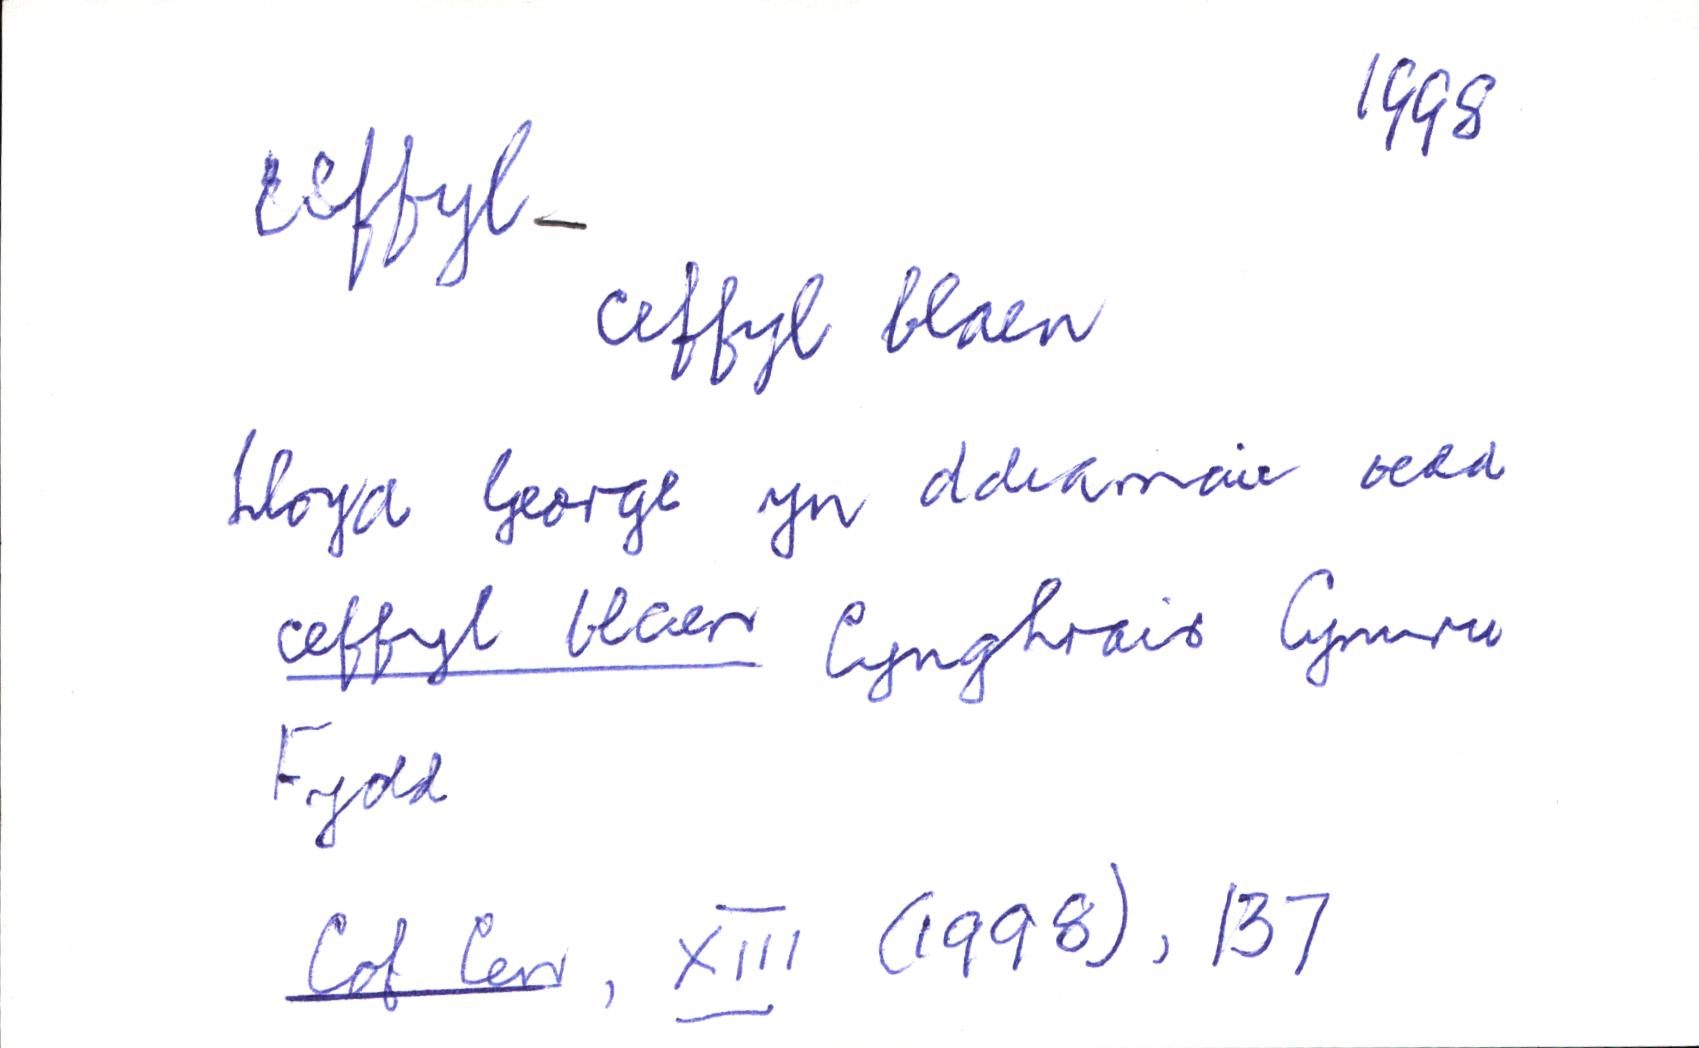 1998
ceffyl –
ceffyl blaen
Lloyd George yn ddiamau oedd
ceffyl blaen Cynghrair Cymru
Fydd
Cof Cen, XIII (1998), 137